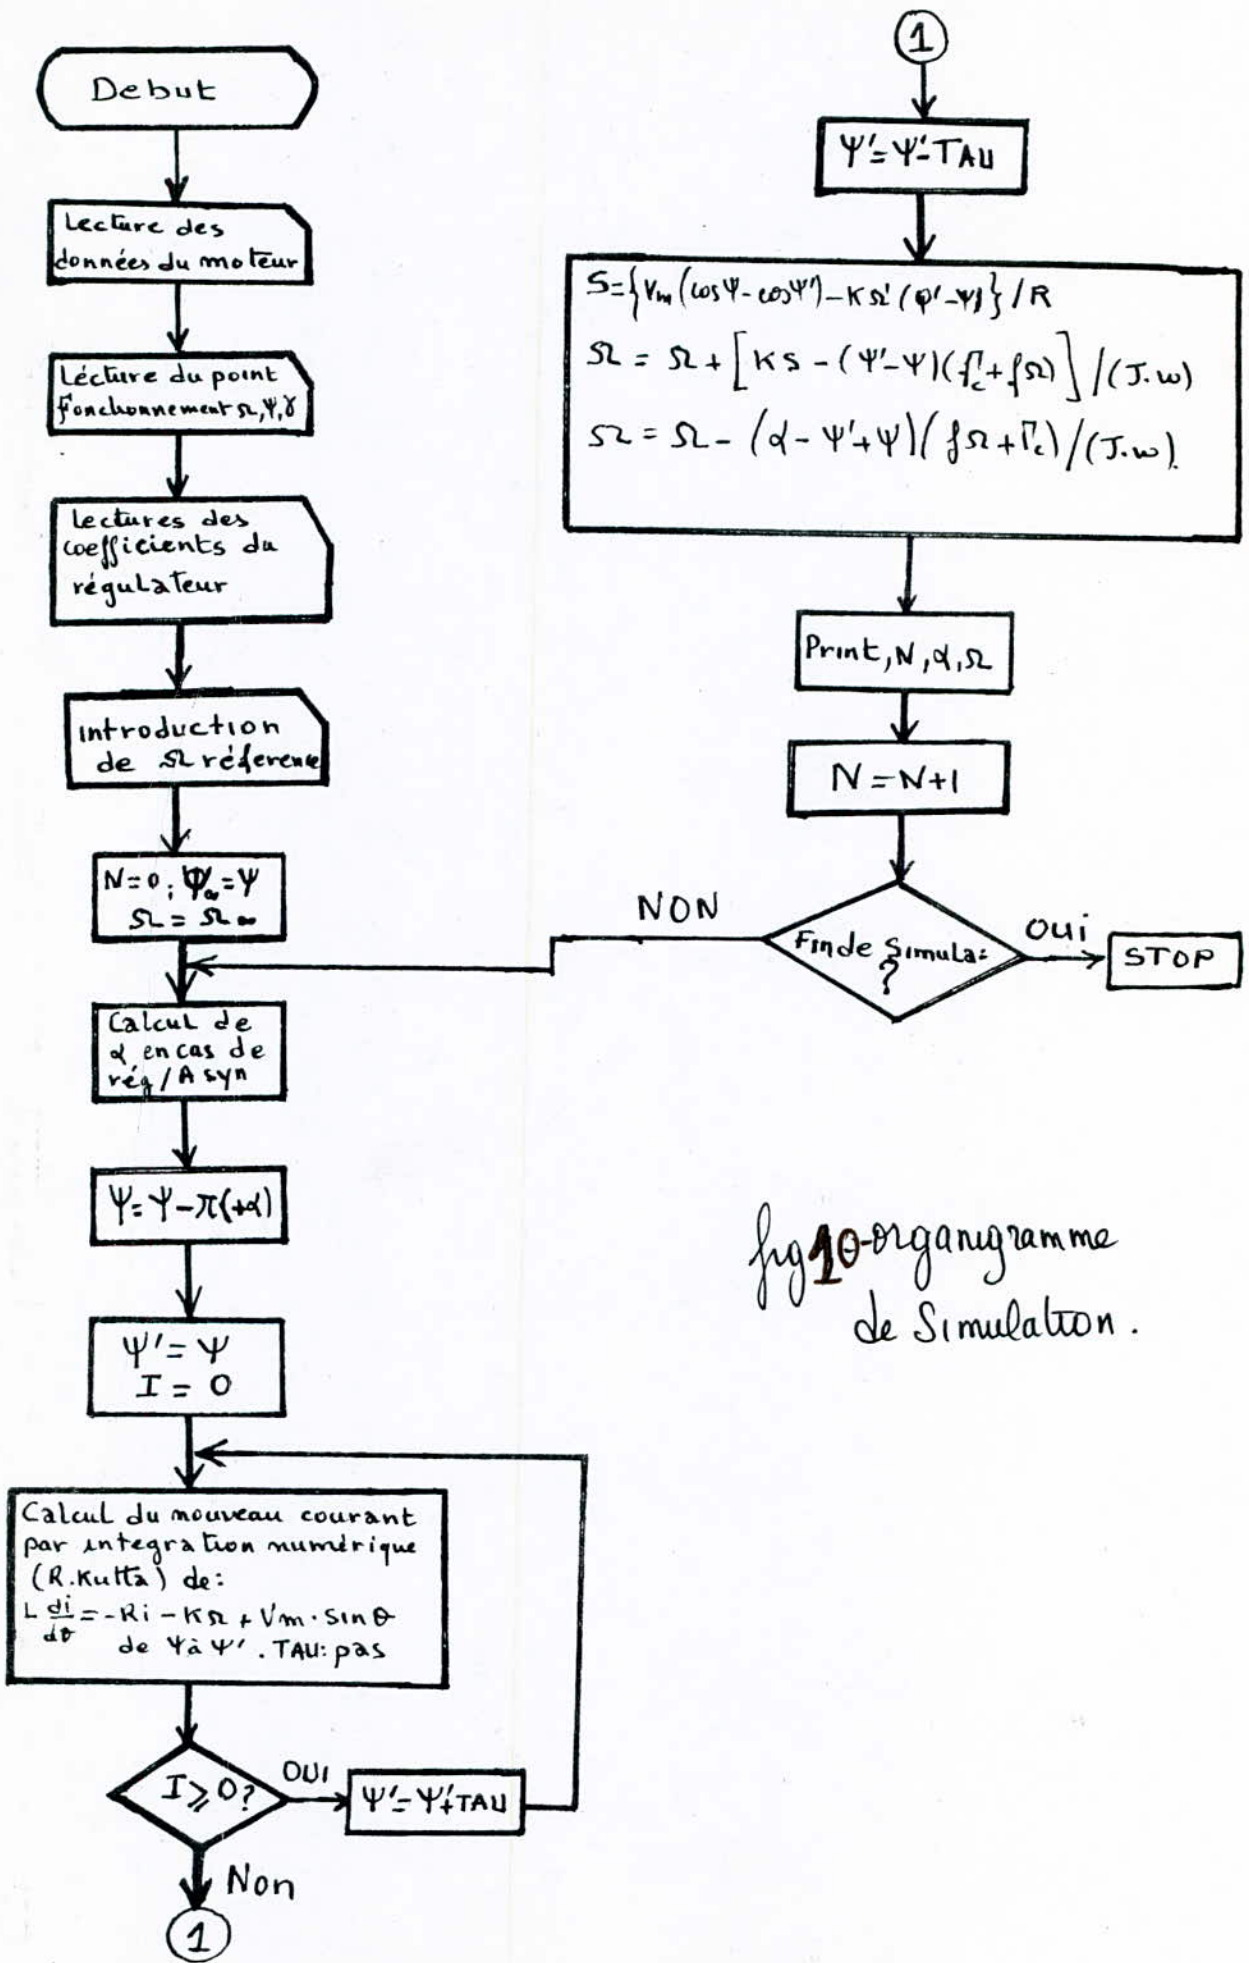 Debut
Lecture des
données du moteur
Lécture du point
Fonctionnement Ω, Ψ, γ
Lectures des
coefficients du
régulateur
introduction
de Ω référence
N=0; Ψ∞=Ψ
Ω = Ω∞
Calcul de
α en cas de
rég/Asyn
Ψ=Ψ-π(+α)
Ψ'=Ψ
I = 0
Calcul du nouveau courant
par integration numérique
(R.Kutta) de:
L di/dθ = -Ri - KΩ + Vm . sin θ
de Ψ à Ψ' . TAU: pas
I ⩾ 0?
OUI
Ψ'=Ψ'+TAU
Non
1
1
Ψ'=Ψ'-TAU
S={Vm(cosΨ-cosΨ')-KΩ'(Ψ'-Ψ)}/R
Ω = Ω + [KS - (Ψ'-Ψ)(Γc+fΩ)]/(J.w)
Ω = Ω - (α-Ψ'+Ψ)(fΩ+Γc)/(J.w).
Print, N, α, Ω
N=N+1
NON
Fin de Simula=
?
OUI
STOP
fig 10-organigramme
de Simulation.